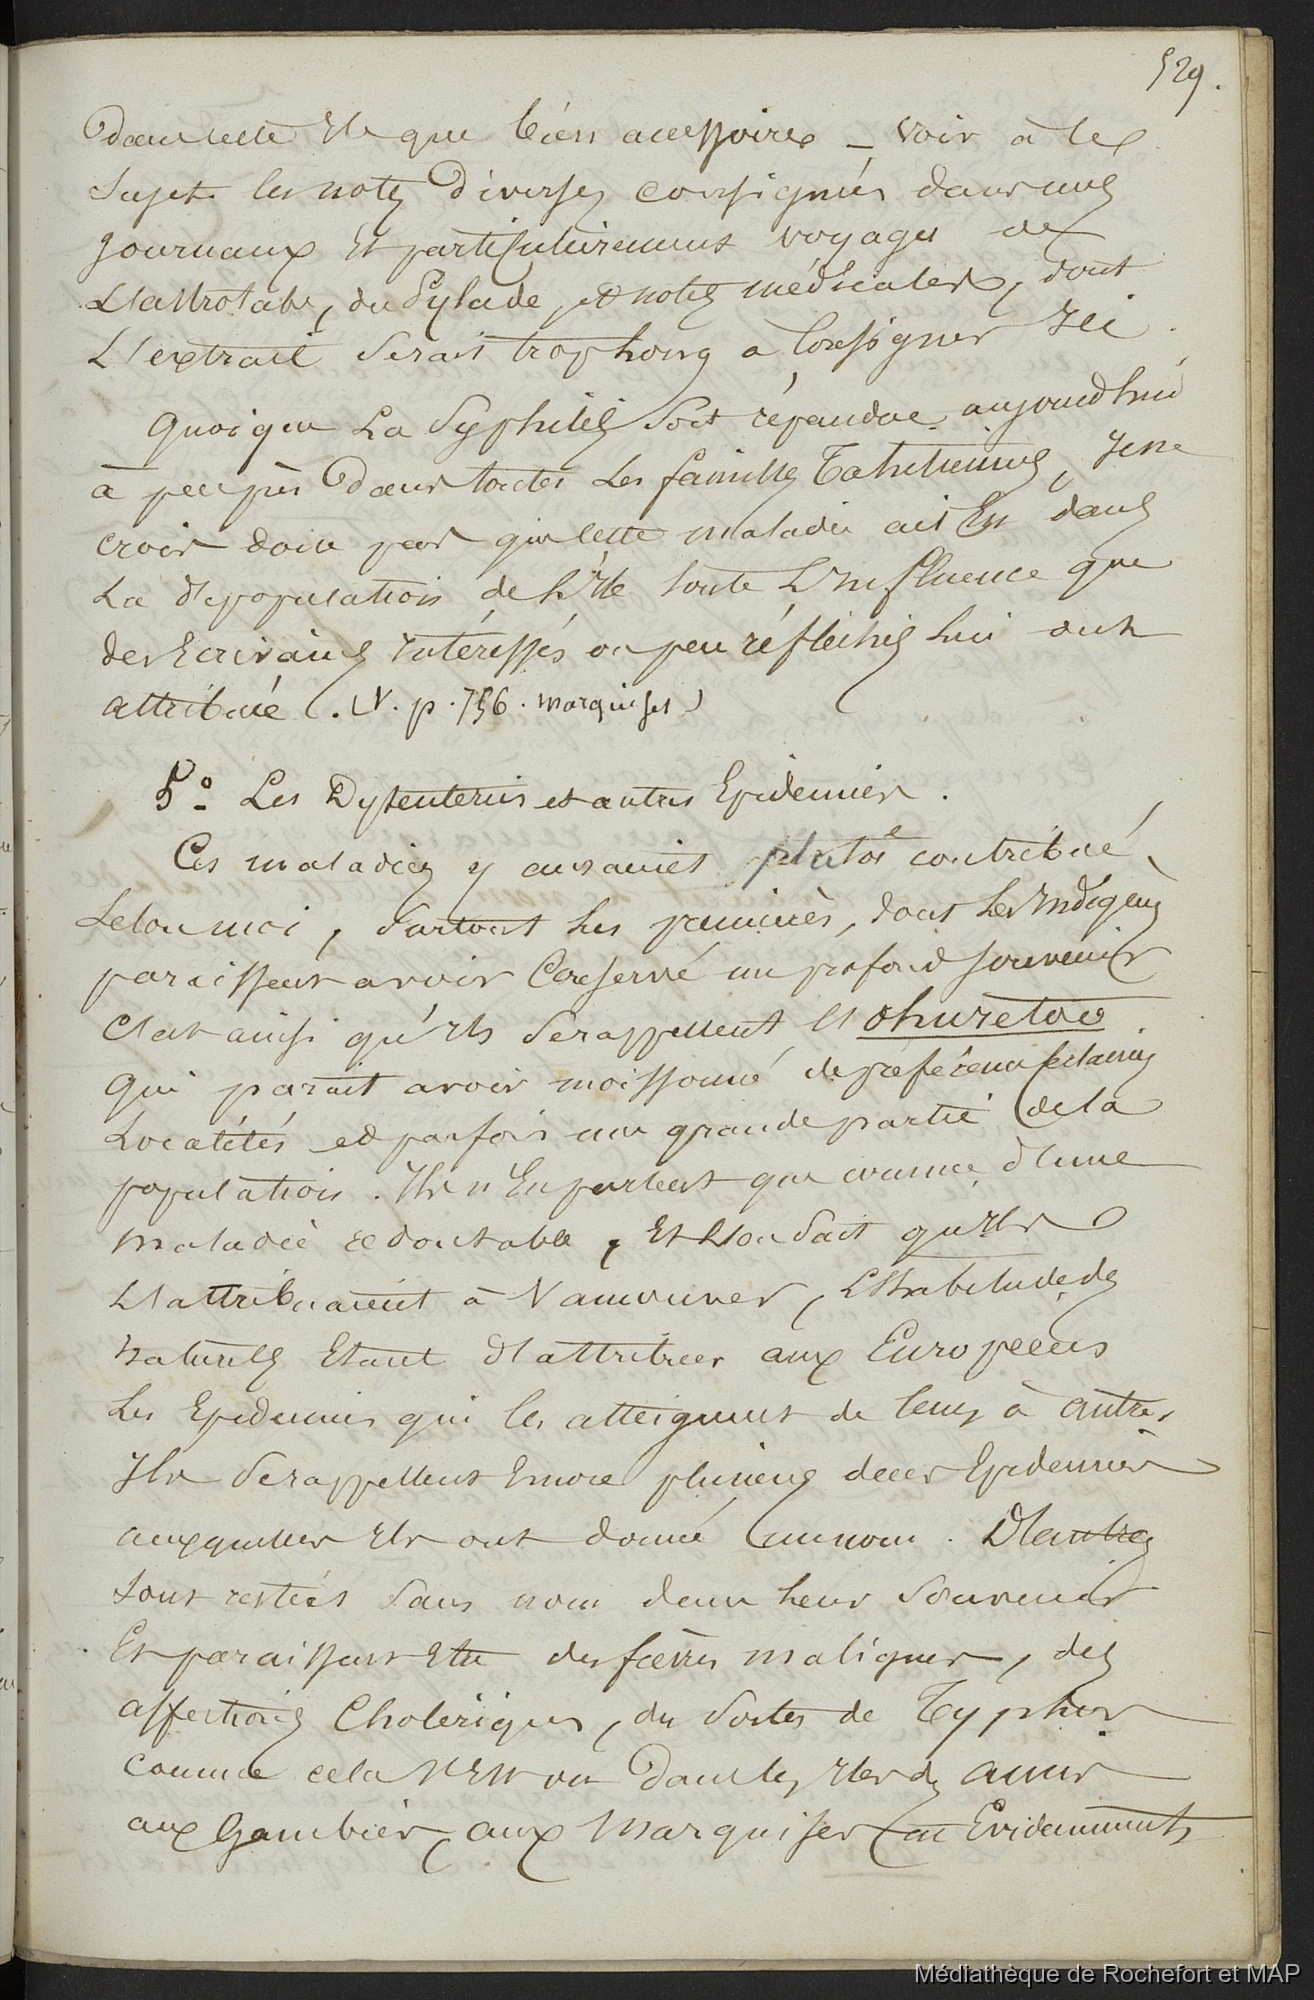 529.
dans cette Ile que bien accessoires _ Voir à ce
Sujet les notes Diverses consignées dans mes
journaux Et particulièrement voyages de
L'astrolabe, du Pylade, et notes médicales, dont
L'extrait serait trop long à Consigner Ici.
Quoique La Syphilis soit répandue aujourd'hui
à peu près Dans toutes Les familles Tahitiennes, Je ne
crois donc pas que cette maladie ait Eu dans
La dépopulation de L'Ile toute L'Influence que
des Ecrivains Intéressés ou peu réfléchis lui ont
attribuée (. V. p. 756. marquises)
5° Les Dyssenteries et autres Epidemies.
Ces maladies y auraient plutot contribué,
Selon moi, Surtout les premières, dont les Indigènes
paraissent avoir Conservé un profond souvenir
C'est ainsi qu'Ils se rappellent, l'ohuretoto
qui parait avoir moissonné de préférence certaines
Localités et parfois une grande partie de la
population. Ils n'En parlent que comme d'une
maladie redoutable, Et L'on Sait qu'Ils
L'attribuaient à Vancouver, L'habitude des
naturels Etant D'attribuer aux Européens
Les Epidemies qui les atteignent de temps à autre.
Ils se rappellent Encore plusieurs de ces Epidemies
auxquelles Ils ont donné un nom. D'autres
sont restées Sans nom dans leur Souvenir
Et paraissent Etre des fièvres malignes, des
affections Cholériques, des Sortes de Typhus
comme cela s'Est vu Dans les Iles des amis
aux Gambier, aux Marquises Evidemment